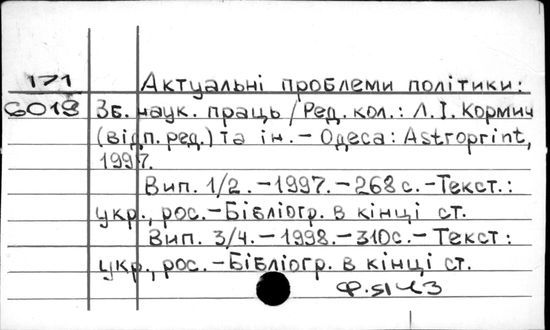 171 Актуальні проблеми політики:
6019 Зб. наук. праць / Ред. кол.: Л.І. Кормич
(відп. ред.) та ін. – Одеса: Astroprint,
1997.
Вип. 1/2. – 1997. – 268 с. – Текст.:
укр., рос. – Бібліогр. в кінці ст.
Вип. 3/4. – 1998. – 310с. – Текст:
укр., рос. – Бібліогр. в кінці ст.